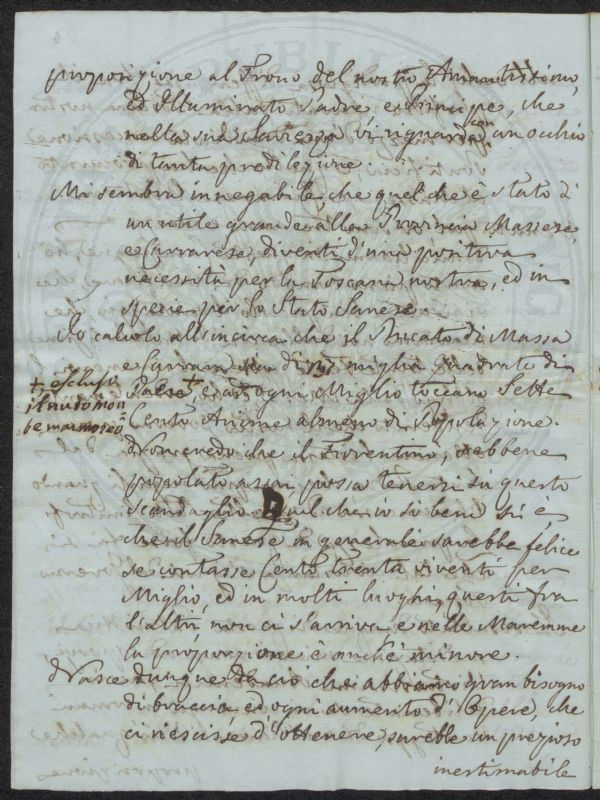 proposizione al Trono del nostro Amantissimo,
ed Illuminato Padre e Principe, che
nella sua Saviezza vi riguarda con un occhio
di tanta predilezione.
Mi sembra innegabile, che quel che è stato d'
un utile grande alla Provincia Massese,
e Carrarese, diventi d'una positiva
necessità per la Toscana nostra, ed in
specie per lo Stato Sanese.
Io calcolo all'incirca che il Ducato di Massa
e Carrara sia di miglia quadrate di
Paese +, e ad ogni Miglio toccano Sette
Cento Anime almeno di Popolazione.
+ escluso
il nudo mon
te marmoreo
Non credo che il Fiorentino, sebbene
popolato assai possa tenersi su questo
scandaglio. Quel che io so bene si è,
che il Sanese in generale sarebbe felice
se contasse Cento trenta viventi per
Miglio, ed in molti luoghi, questi fra
l'altri non ci s'arriva e nelle Maremme
la proporzione è anche minore.
Nasce dunque da ciò che abbiamo gran bisogno
di braccia, ed ogni aumento d'Opere, che
ci riescisse d'ottenere, sarebbe un prezioso
inestimabile